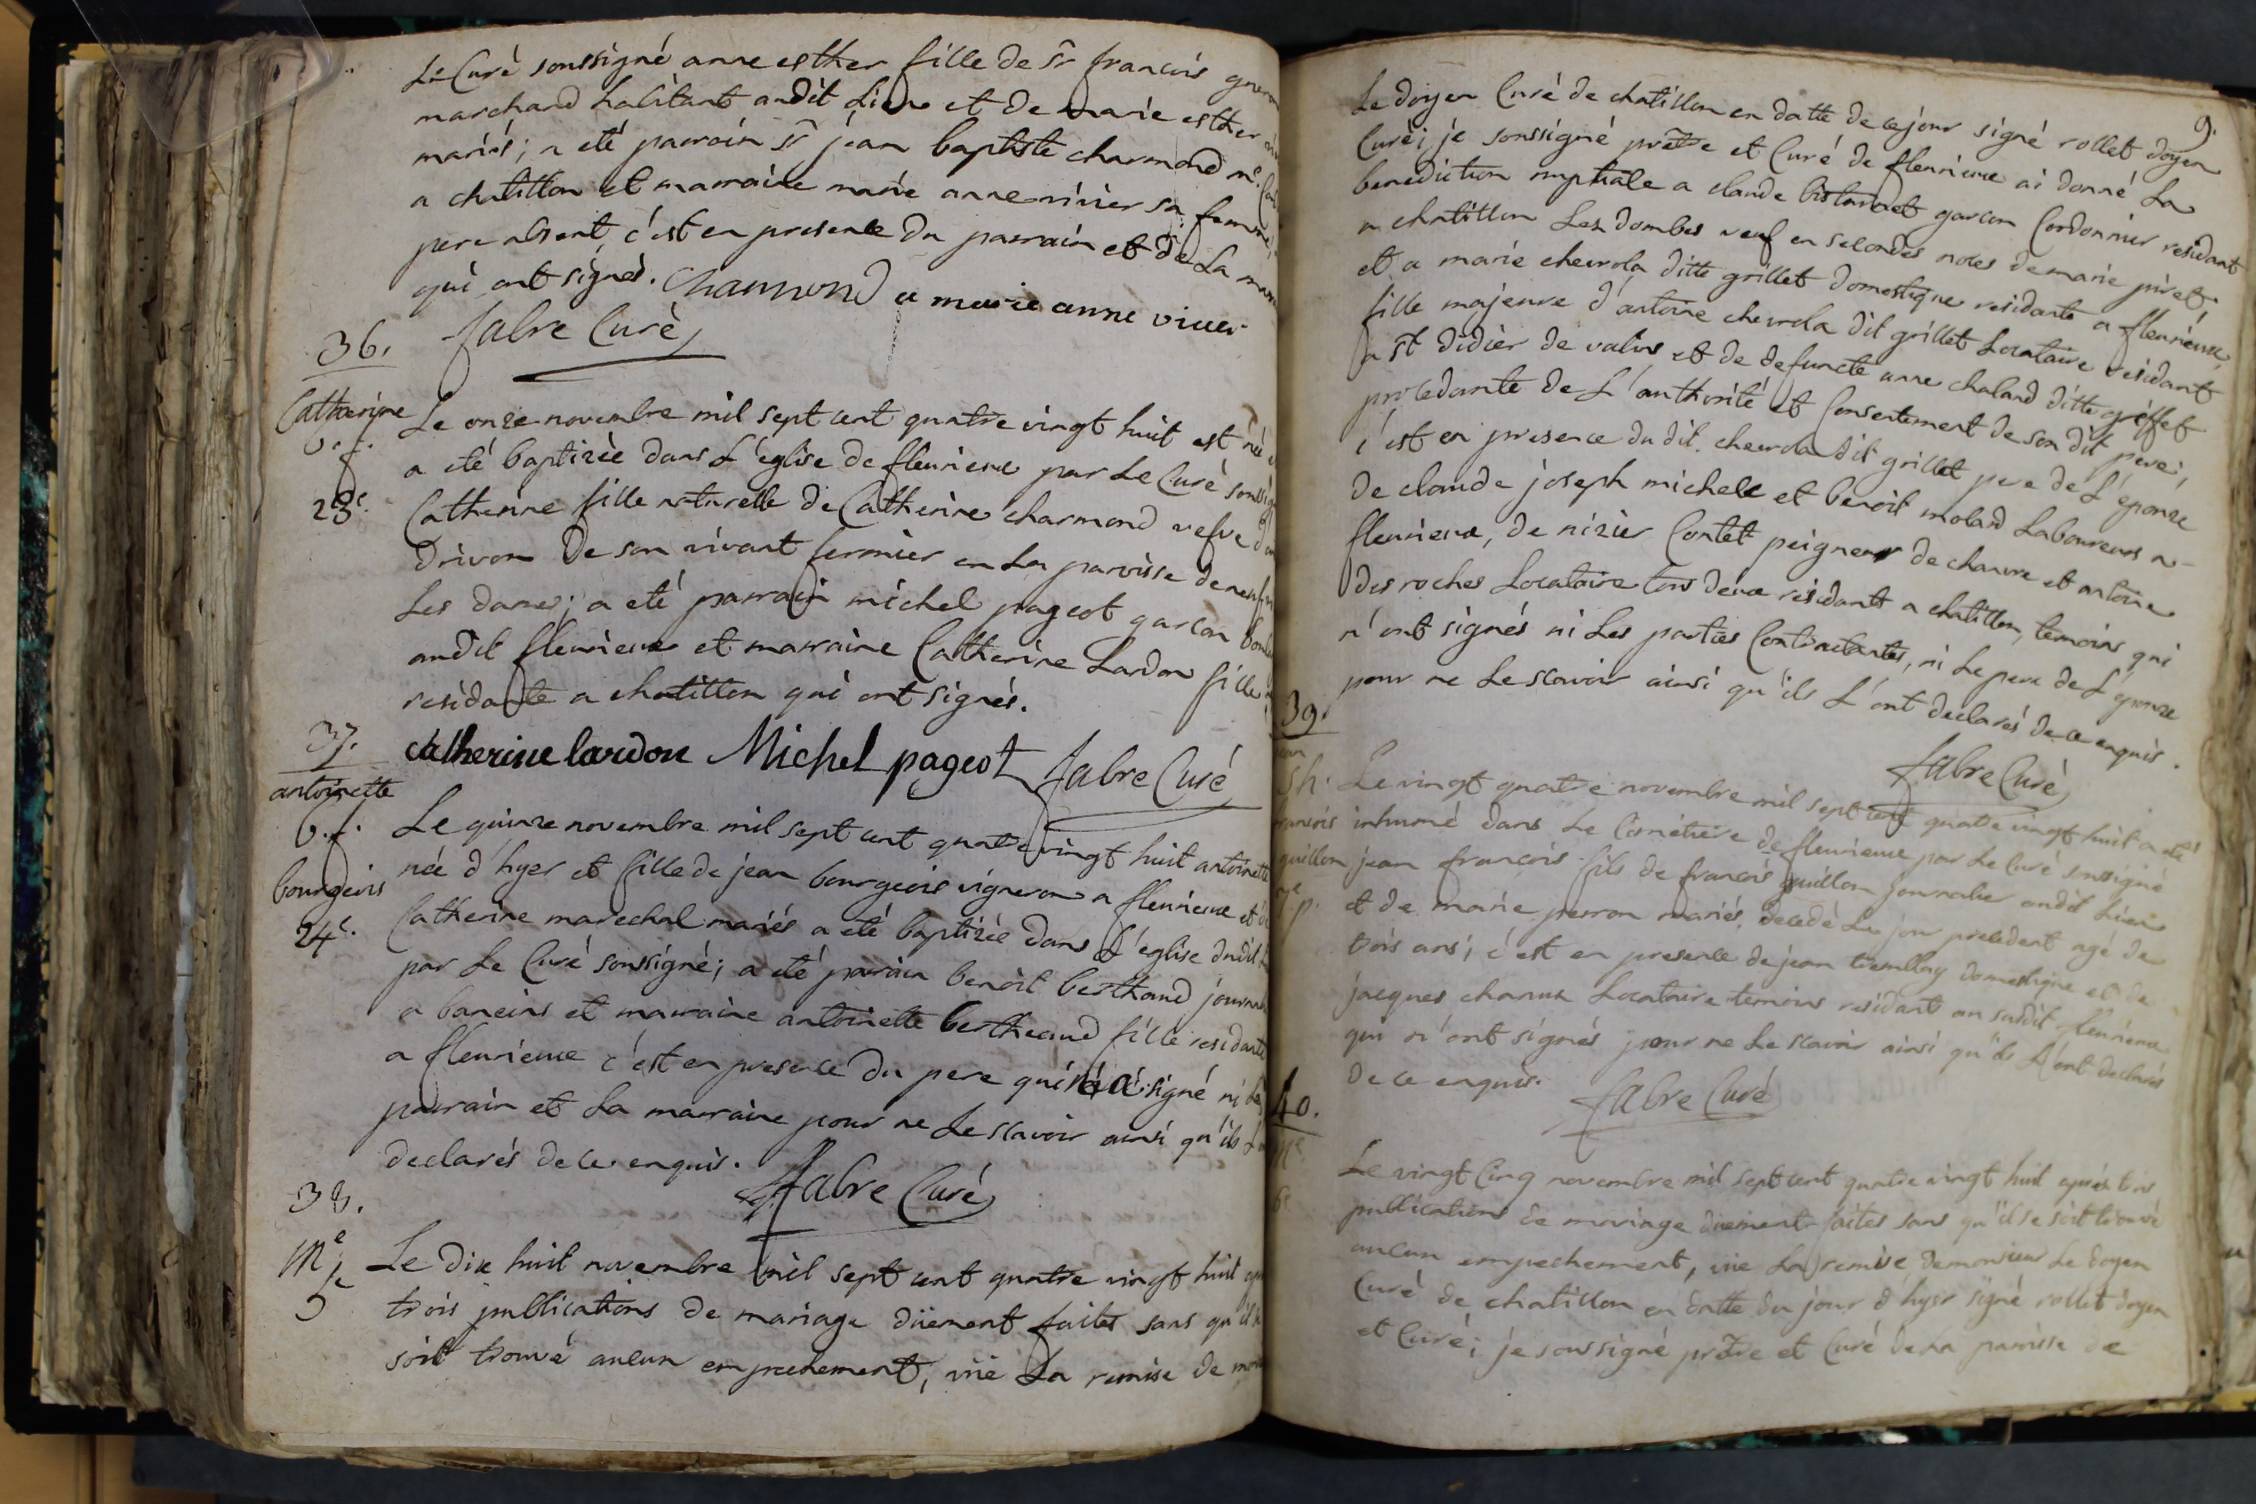 Le Curé soussigné anne esther fille de Sr francois
marchand habitant audit Lieu et de marie esther
mariés; a eté parrain Sr jean baptiste charmond
a chatillon et marraine marie anne vivier sa femme,
pere absent, c'est en presence du parrain et de La
qui ont signés. Charmond a marie anne vivier
fabre Curé
36.
Catherine
b. f.
23e.
Le onze novembre mil sept cent quatre vingt huit est née
a eté baptizée dans L'église de fleurieux par Le Curé
Catherine fille naturelle de Catherine charmond vefve
Drivon De son vivant fermier en La paroisse de
Les dames; a eté parrain michel pageot garcon
audit fleurieux et marraine Catherine Lardon fille
residante a chatillon qui ont signés.
catherine lardon Michel pageot fabre Curé
37.
antoinette
b. f.
bourgeois
24e.
Le quinze novembre mil sept cent quatre vingt huit antoinette
née d'hyer et fille de jean bourgeois vigneron a fleurieux et
Catherine marechal mariés a eté baptizée dans L'église dudit
par Le Curé soussigné; a eté parrain benoit berthaud
a baneins et marraine antoinette bertheaud fille residante
a fleurieux c'est en presence du pere qui n'a signé ni
parrain et La marraine pour ne Le scavoir ainsi qu'ils
declarés de ce enquis.
fabre Curé
38.
Me
5e
Le dix huit novembre mil sept cent quatre vingt huit
trois publications de mariage düement faites sans qu'il
soit trouvé aucun empechement, vüe La remise de
9.
Le doyen Curé de chatillon en datte de ce jour signé rollet doyen
Curé; je soussigné prêtre et Curé de fleurieux ai donné La
benediction nuptiale a claude bistarnet garcon Cordonnier residant
a chatillon Les dombes veuf en secondes noces de marie piret;
et a marie chevrola ditte grillet domestique residante a fleurieux,
fille majeure d'antoine chevrola dit grillet Locataire residant
a St didier de valins et de defuncte anne chaland ditte griffet
procedante de L'authorité et Consentement de son dit pere;
c'est en presence du dit chevrola dit grillet pere de L'epouze
de claude joseph michele et benoit molard Laboureurs a
fleurieux, de nizier Contet peigneur de chanvre et antoine
des roches Locataire tous deux residant a chatillon, temoins qui
n'ont signés ni Les parties Contractantes, ni Le pere de L'epouze
pour ne Le scavoir ainsi qu'ils L'ont declarés de ce enquis.
fabre Curé
39.
Sh.
francois
guillon
Le vingt quatre novembre mil sept cent quatre vingt huit a eté
inhumé dans Le Cimetiere de fleurieux par Le Curé soussigné
jean francois fils de francois guillon journalier audit Lieu
et de marie perron mariés, decedé Le jour precedent agé de
trois ans; c'est en presence de jean tremblay domestique et de
jacques chanux Locataire temoins residant au susdit fleurieux
qui n'ont signés pour ne Le scavoir ainsi qu'ils L'ont declarés
De ce enquis.
fabre Curé
40.
Me
6e
Le vingt Cinq novembre mil sept cent quatre vingt huit aprés trois
publications de mariage düement faites sans qu'il se soit trouvé
aucun empechement, vüe La remise de monsieur Le doyen
Curé de chatillon en datte du jour d'hyer signé rollet doyen
et Curé; je soussigné prêtre et Curé de La paroisse de